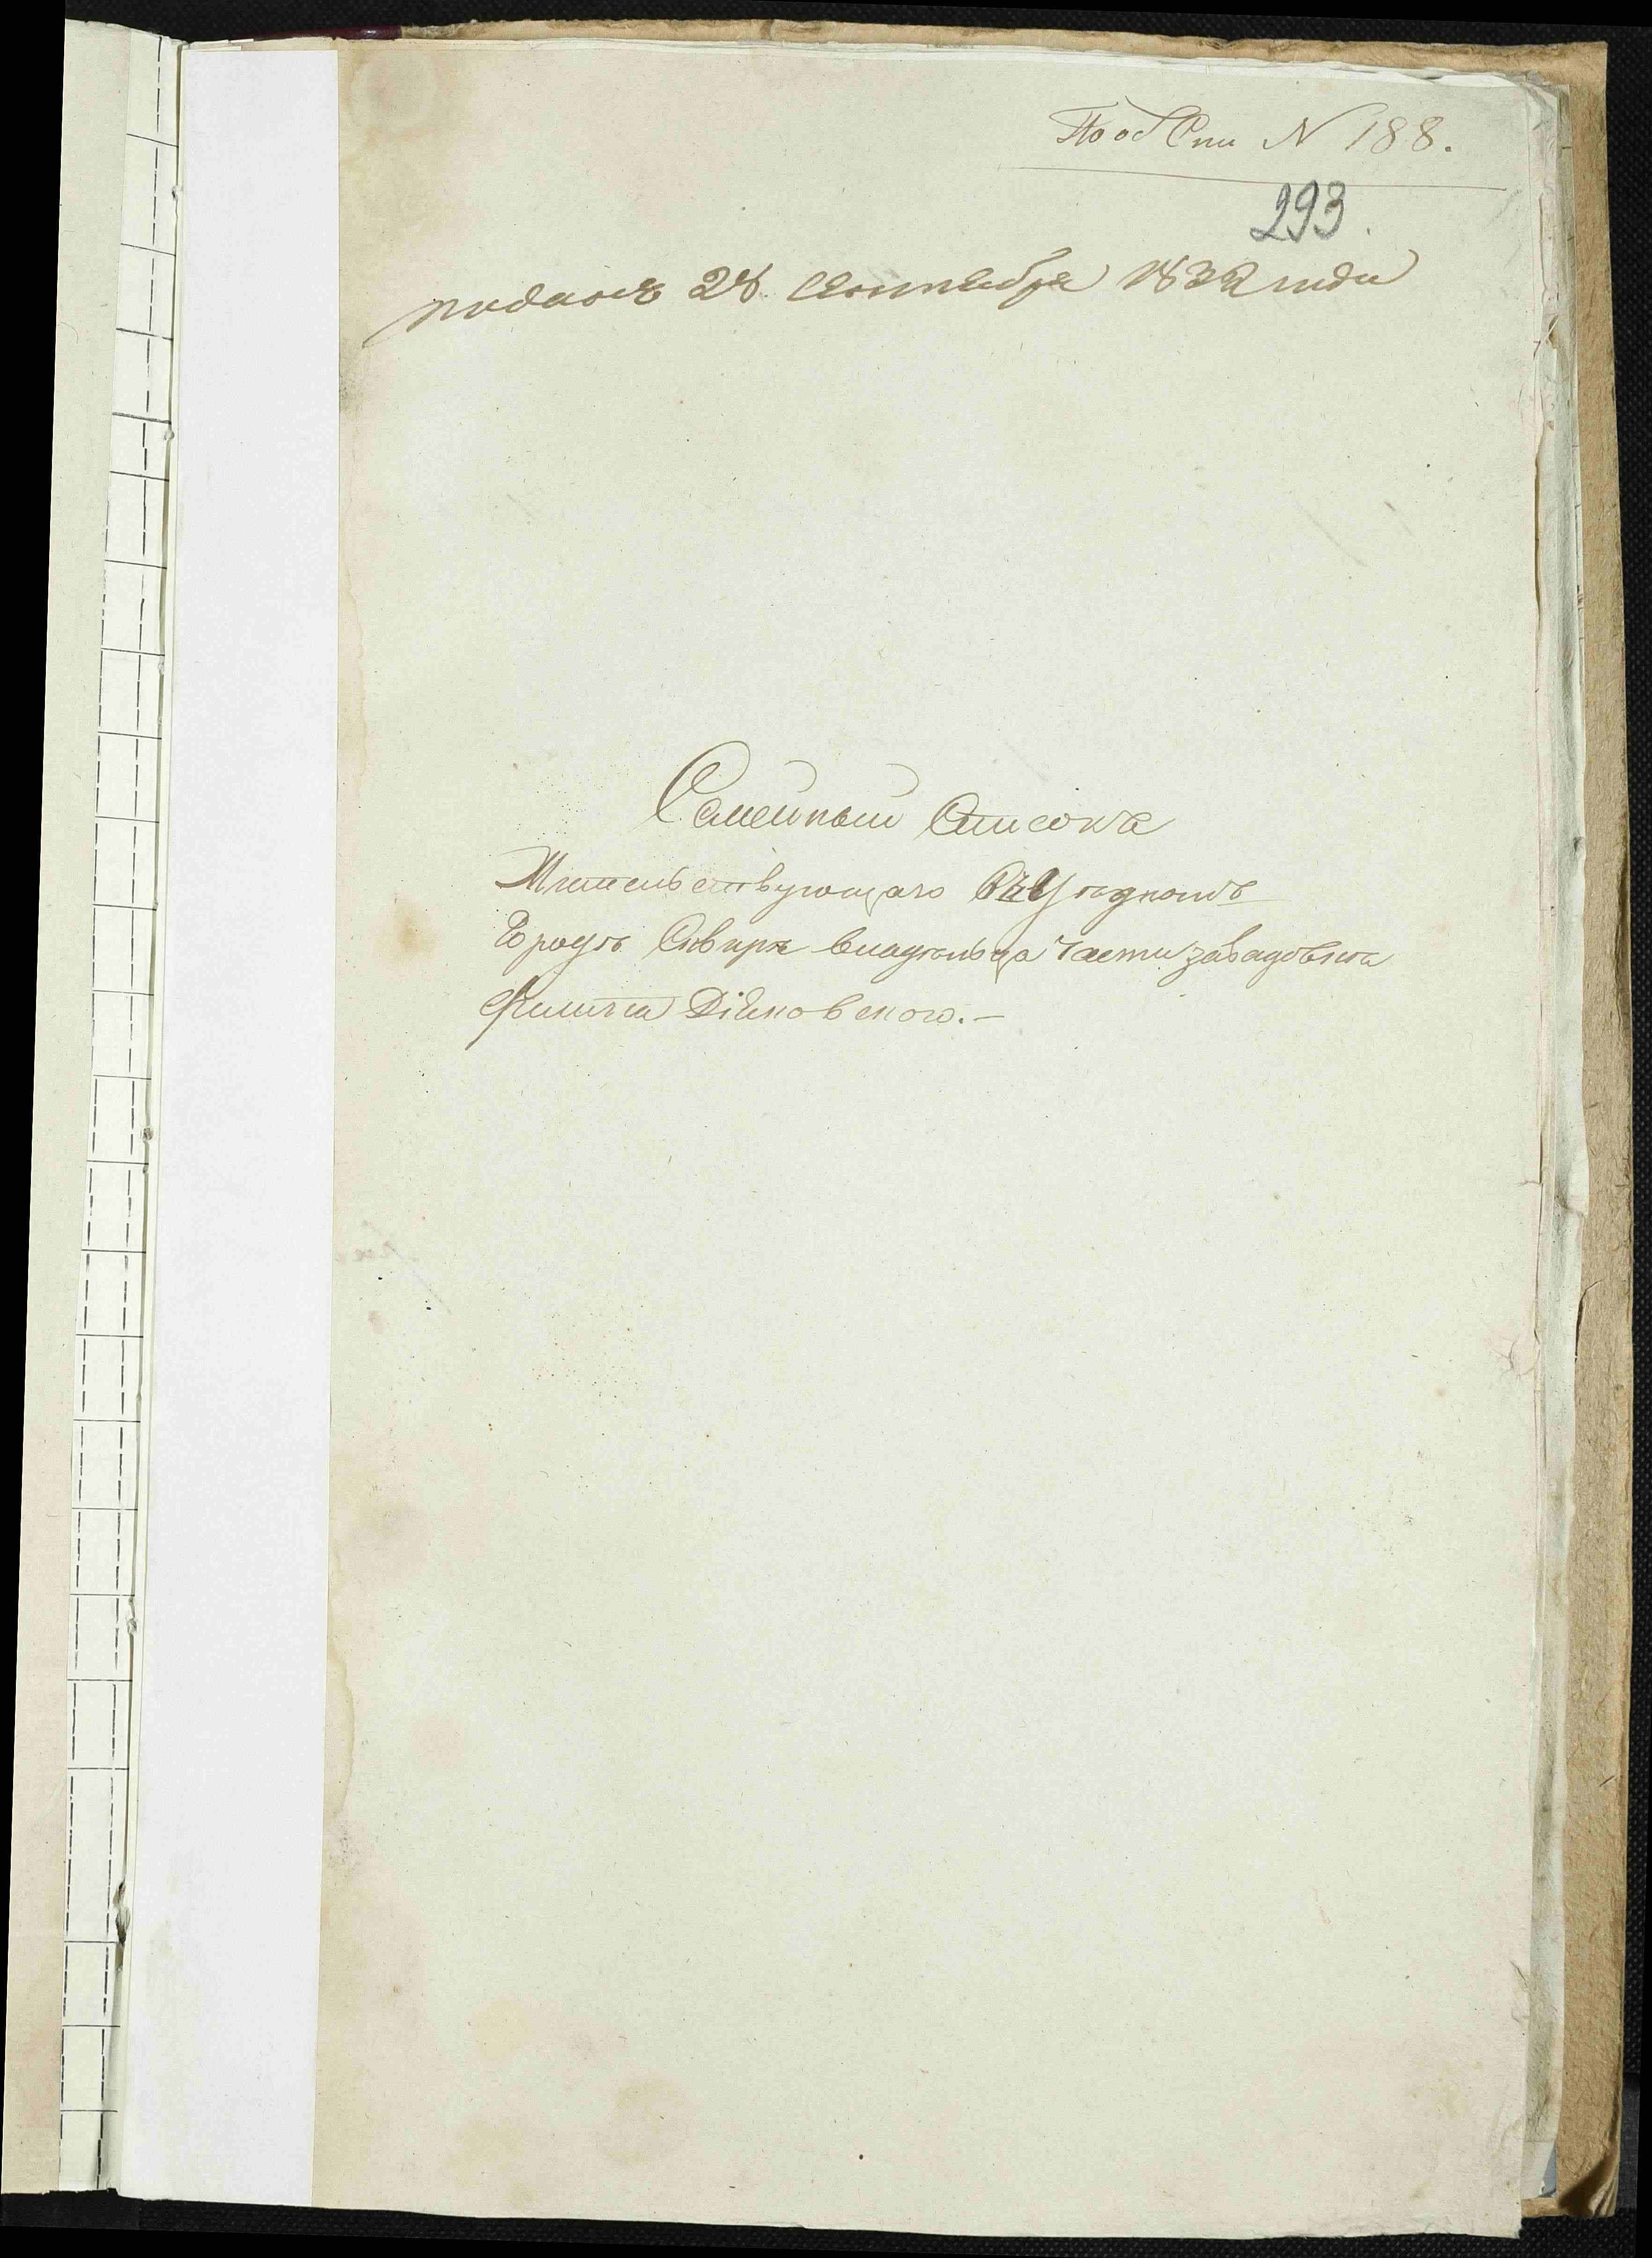 По об Спи N 188.
293.
подано 28 Сентября 1832 года
Семейный Списокъ
Жительствующаго въ Уѣздномъ
Городѣ Сквирѣ владѣльца части завадовка
Филипа Дiаковского.-